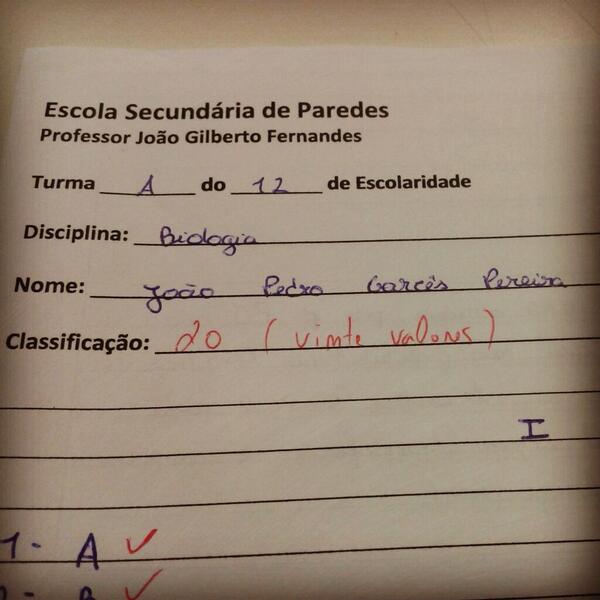 Escola Secundária de Paredes
Professor João Gilberto Fernandes
Turma A do 12 de Escolaridade
Disciplina: Biologia
Nome: João Pedro Garcês Pereira
Classificação: 20 (vinte valores)
I
1- A ✓
2- B ✓